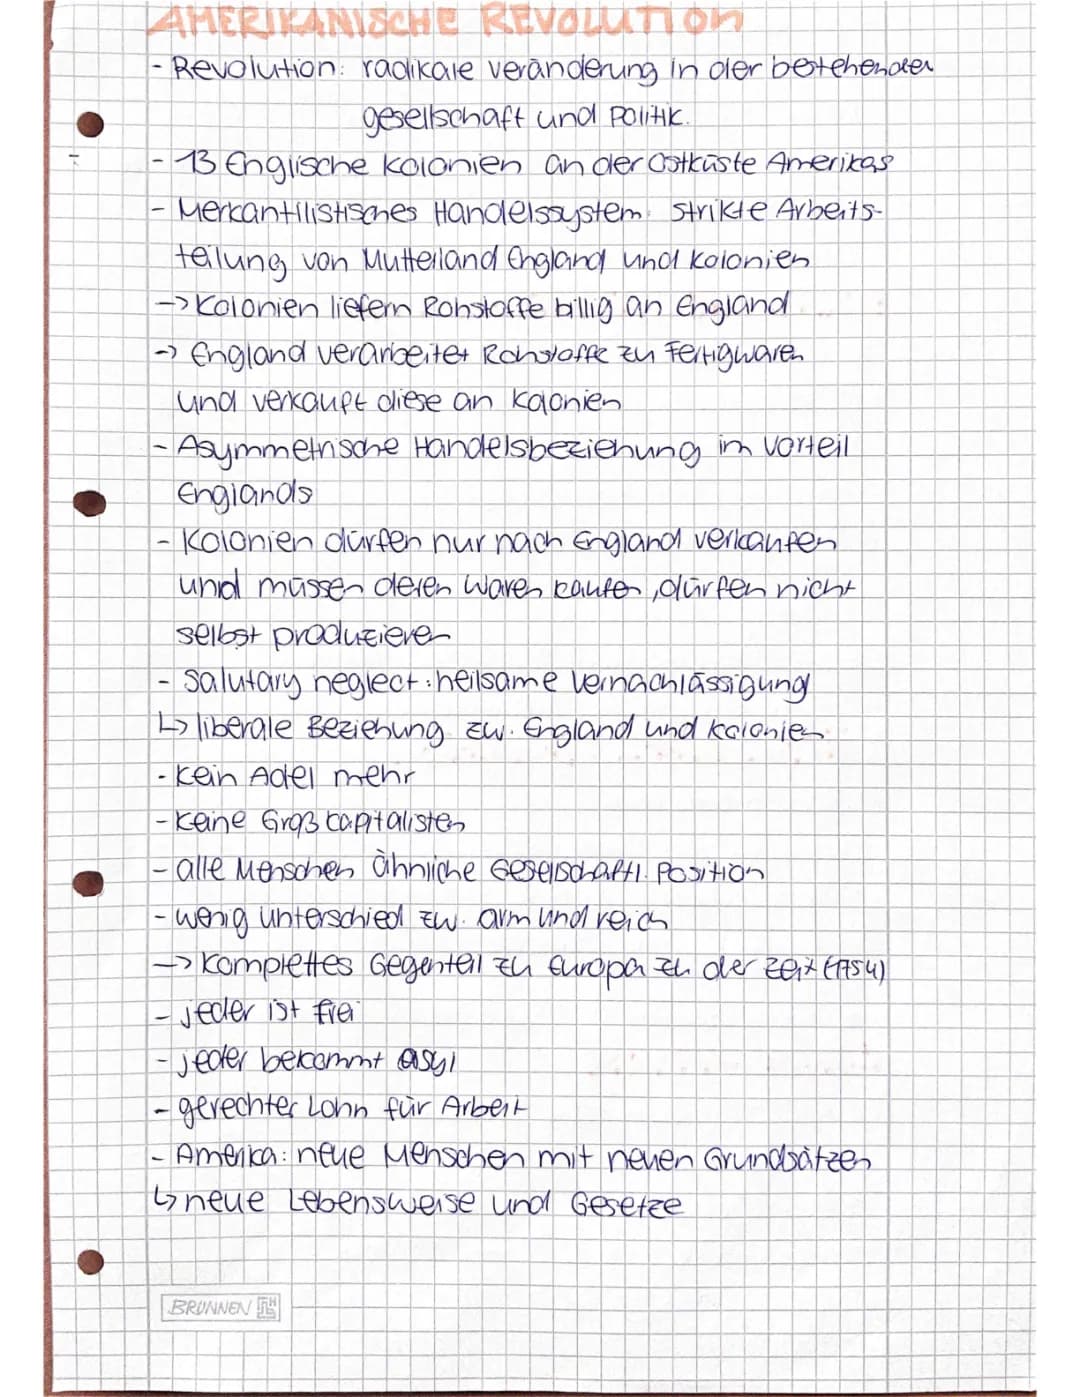 AMERIKANISCHE REVOLUTION
- Revolution: radikale veränderung in der bestehenden
gesellschaft und Politik.
- 13 Englische kolonien an der Ostküste Amerikas
- Merkantilistisches Handelssystem: strikte Arbeits-
teilung von Mutterland England und kolonien
-> Kolonien liefern Rohstoffe billig an England
-> England verarbeitet Rohstoffe zu Fertigwaren
und verkauft diese an Kolonien
- Asymmetrische Handelsbeziehung im Vorteil
Englands
- Kolonien dürfen nur nach England verkaufen
und müssen deren Waren kaufen, dürfen nicht
selbst produzieren
- Salutary neglect: heilsame Vernachlässigung
↳ liberale Beziehung zw. England und Kolonien
- kein Adel mehr
- keine Großkapitalisten
- alle Menschen ähnliche Gesellschaftl. Position
- wenig unterschied zw. arm und reich
-> komplettes Gegenteil zu Europa zu der Zeit (1754)
- jeder ist frei
- jeder bekommt asyl
- gerechter Lohn für Arbeit
- Amerika: neue Menschen mit neuen Grundsätzen
↳ neue Lebensweise und Gesetze
BRUNNEN